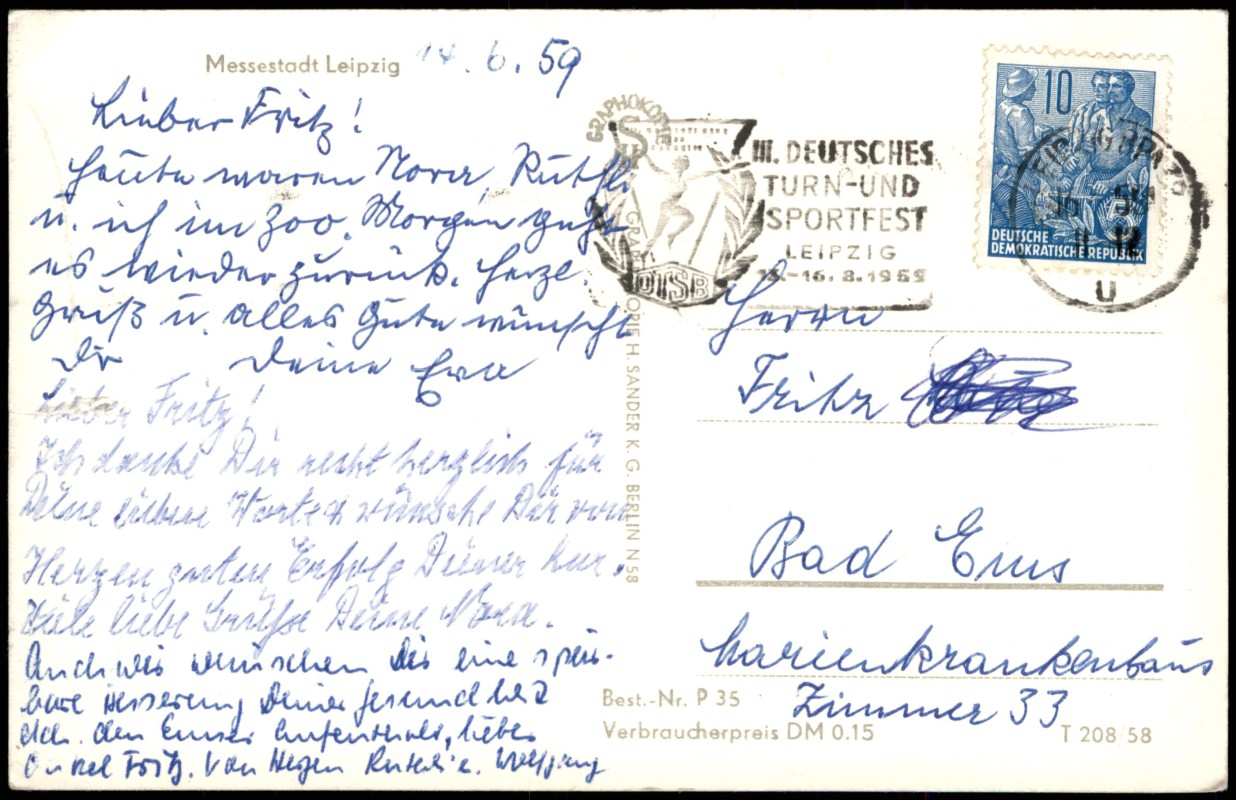 Messestadt Leipzig
14.6.59
Lieber Fritz!
Heute waren Nora, Ruthli
u. ich im Zoo. Morgen geht
es wieder zurück. Herzl.
Grüß u. alles Gute wünscht
Dir Deine Eva
Lieber Fritz!
Ich danke Dir recht herzlich für
Deine lieben Worte & wünsche Dir von
Herzen guten Erfolg Deiner Kur.
Viele liebe Grüße Deine Nora.
Auch wir wünschen Dir eine spür-
bare Besserung Deiner Gesundheit
dch. den Emser Aufenthalt, lieber
Onkel Fritz. Von Herzen Ruthli u. Wolfgang
GRAPHOKOPIE
GRAPHOKOPIE H. SANDER K. G. BERLIN N 58
DTSB
III. DEUTSCHES
TURN-UND
SPORTFEST
LEIPZIG
13.-16.8.1959
10
DEUTSCHE
DEMOKRATISCHE REPUBLIK
LEIPZIG BPA
U
Herrn
Fritz
Bad Ems
Marienkrankenhaus
Zimmer 33
Best.-Nr. P 35
Verbraucherpreis DM 0.15
T 208/58